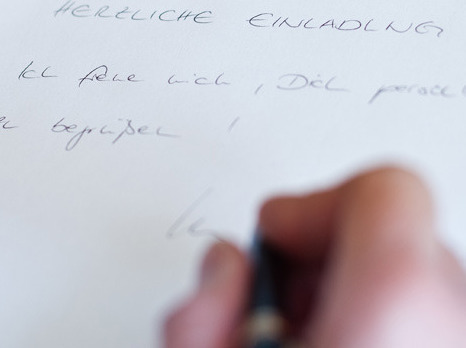 HERZLICHE EINLADUNG
Ich freue mich, Dich
begrüßen!